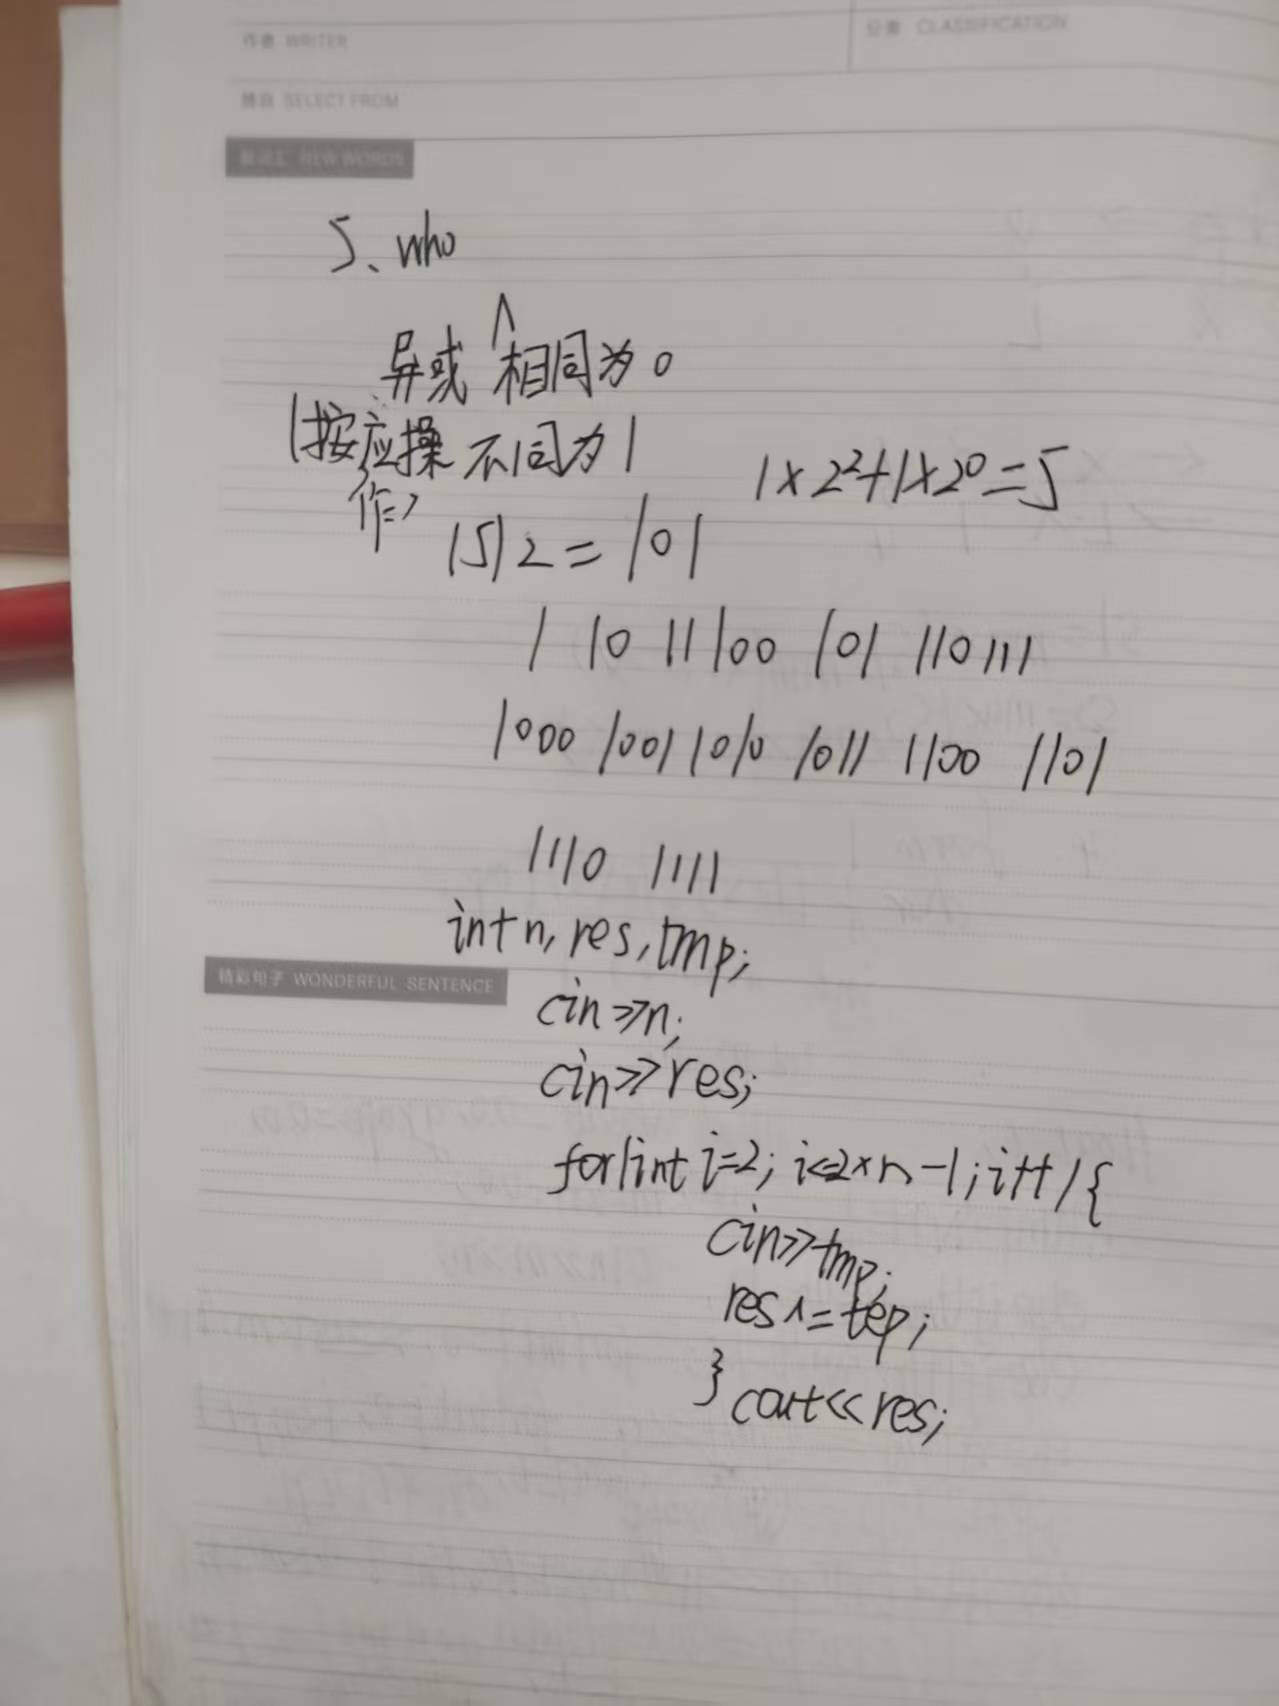 作者 WRITER
分类 CLASSIFICATION
摘自 SELECT FROM
新词汇 NEW WORDS
5、who
异或 ^ 相同为0
(按应操作) 不同为1
1×2²+1×2⁰=5
(5)2=101
1 10 11 100 101 110 111
1000 1001 1010 1011 1100 1101
1110 1111
int n, res, tmp;
精彩句子 WONDERFUL SENTENCE
cin>>n;
cin>>res;
for(int i=2; i<=2×n-1; i++){
cin>>tmp;
res^=tep;
}
cout<<res;